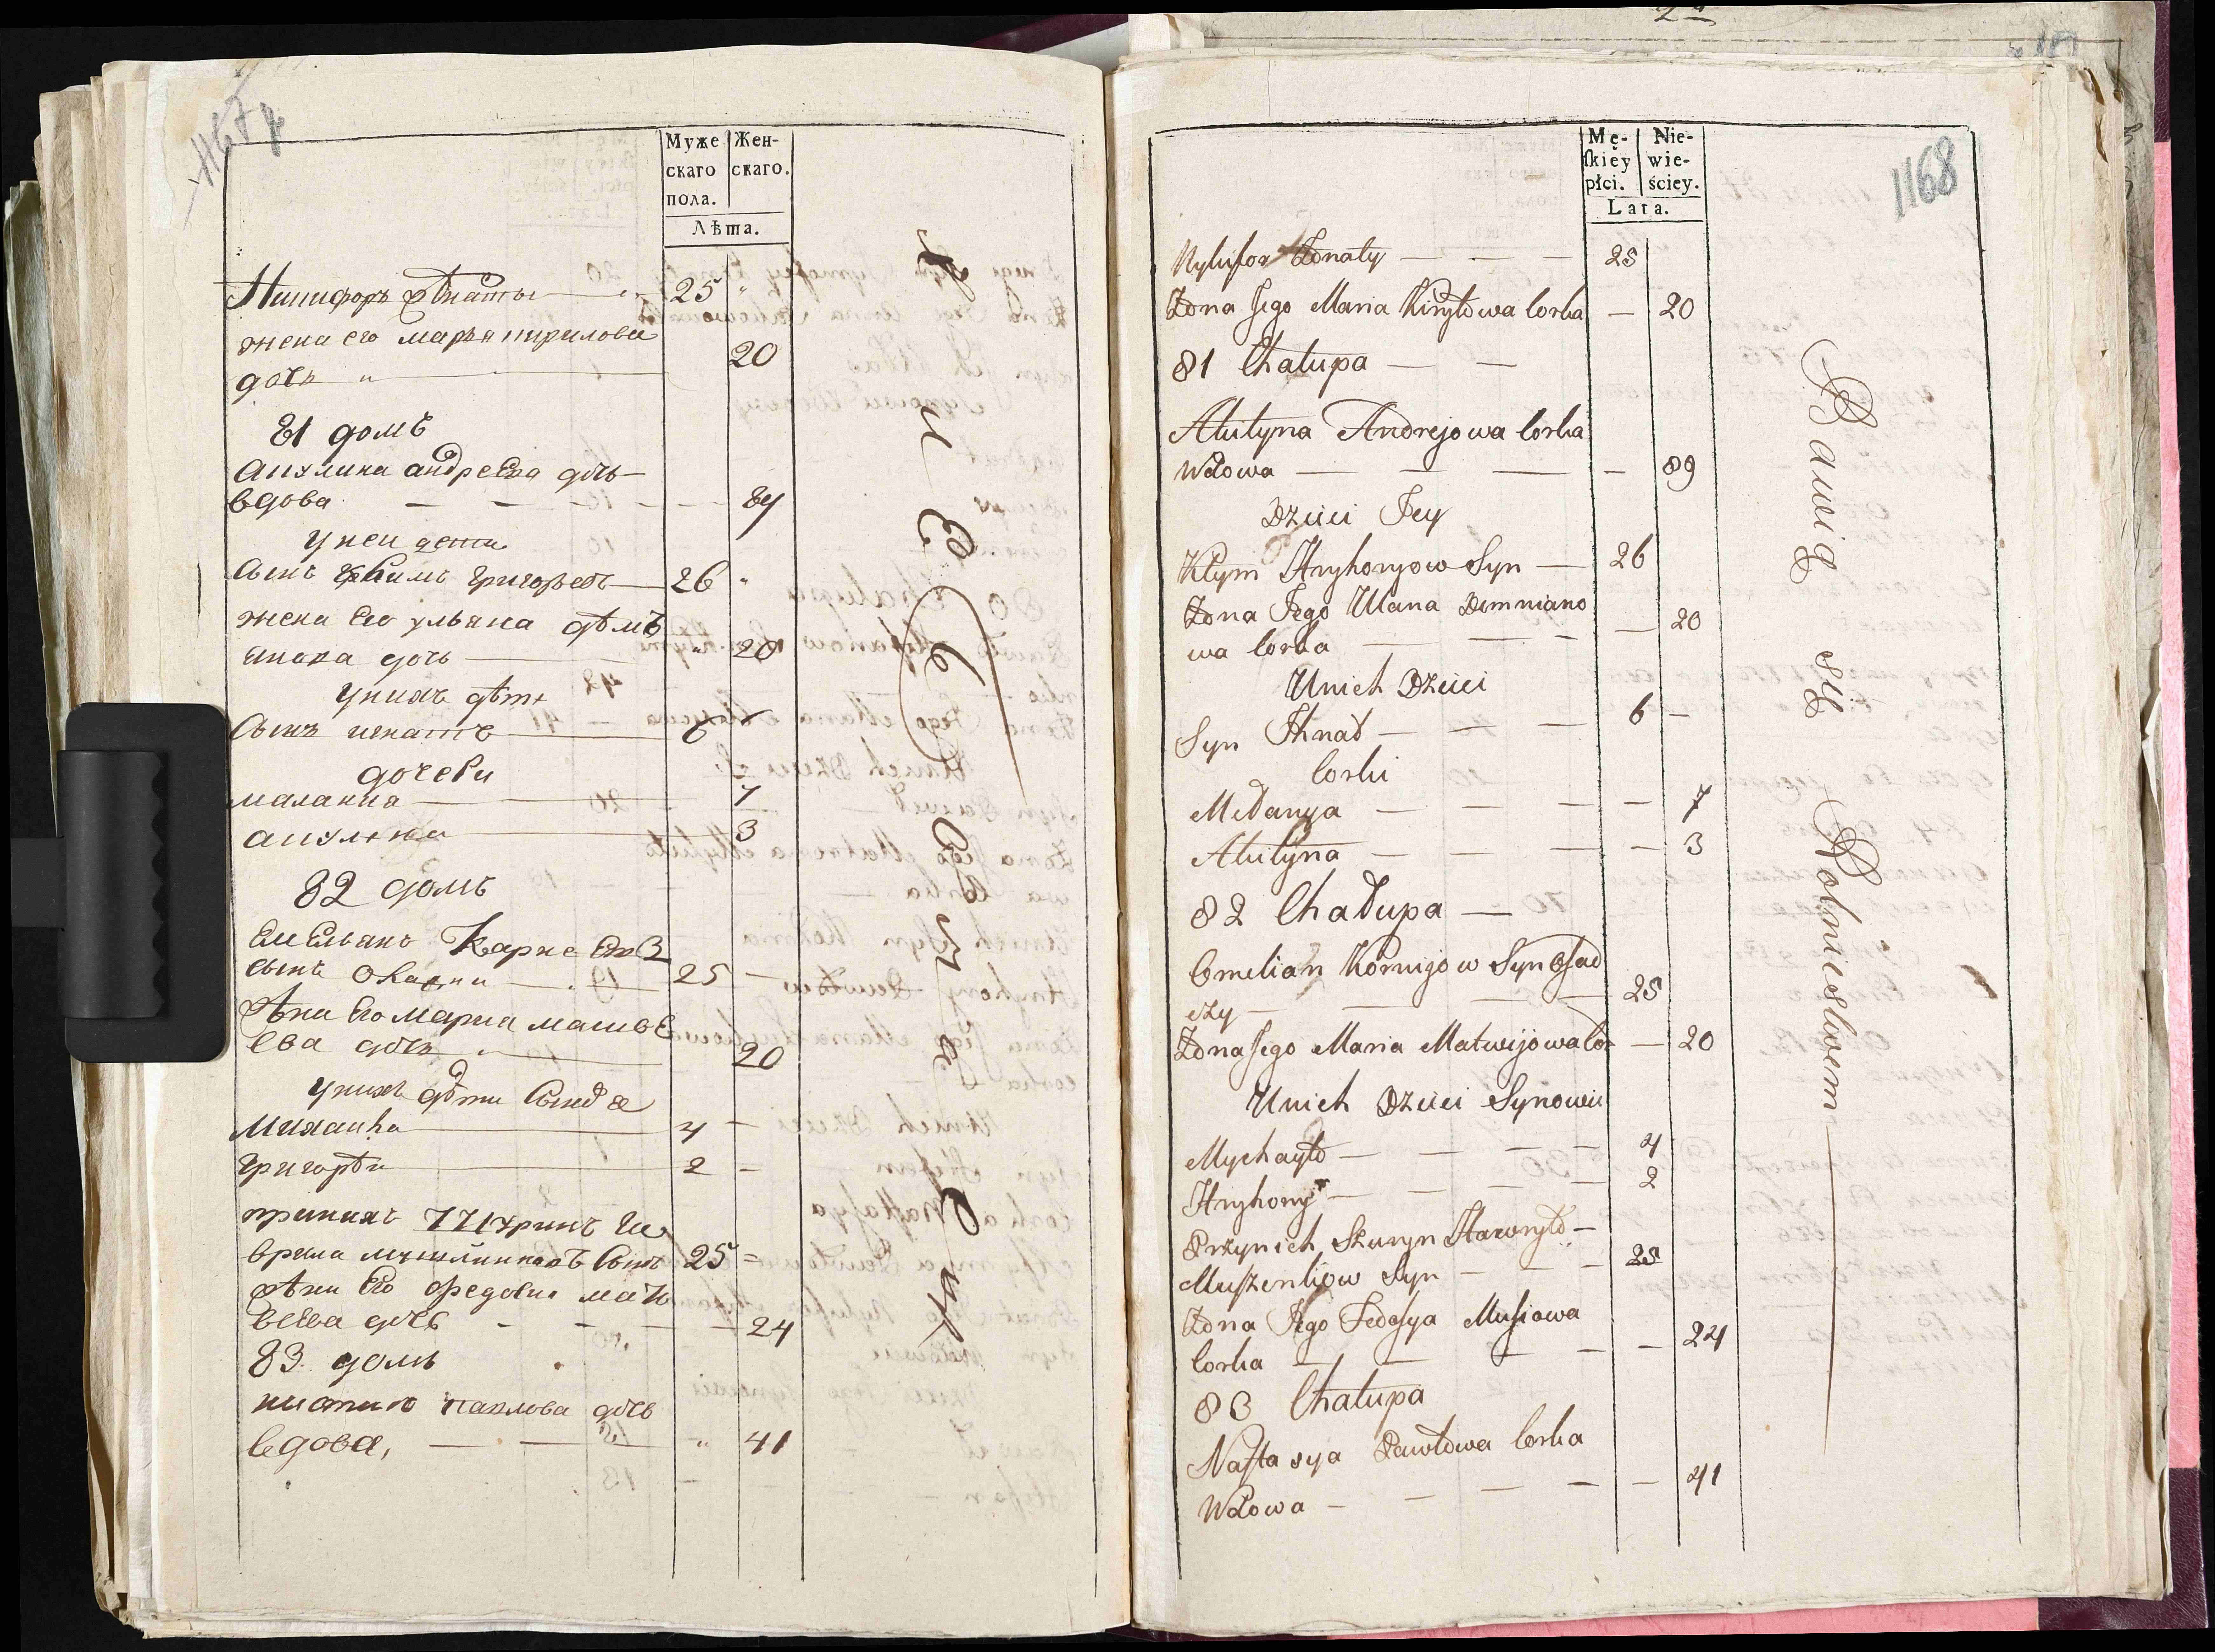 1167
Муже
скаго
пола.
Жен-
скаго.
Лѣта.
Никифоръ жѣнаты 25 "
жена его марья кирилова
дочь " 20
81 домъ
акулина андреева дочь
вдова — — — 89
у неи дети
Сынъ Климъ григорьевъ 26 "
жена Его ульяна дѣмь
янова дочь 20
у нихъ дѣти
Сынъ игнатъ 6
дочери
маланиа 7
акулина 3
82 домъ
Емельянъ Карнеевъ
сынъ 25 —
жѣна Его мариа матвѣ
ева дочь 20
у нихъ дѣти
михаила 4 —
григорѣи 2 —
при нихъ
врила Сынъ 25 =
жѣна Его федосиа
веева дочь — — — 24
83 домъ
павлова дочь
вдова, — — " 41
2
1168
Mę-
ſkiey
płci.
Nie-
wie-
ściey.
Lata.
Nykifor Żonaty — — — 25
Żona Jego Maria Kiryłowa Corka — 20
81 Chałupa — —
Akulyna Andrejowa Corka
Wdowa — — — — 89
Dzieci Jey
Kłym Hryhoryow Syn — 26
Żona Jego Ulana Demniano
wa Corka — — — — 20
U nich Dzieci
Syn Ihnat — — — 6 —
Corki
Mełanya — — — — 7
Akulyna — — — — 3
82 Chałupa —
Emelian Kornijow Syn Osad
czy — — — 25
Żona Jego Maria Matwijowa Cor — 20
U nich Dzieci Synowie
Mychayło — — — — 4
Hryhory — — — — 2
Przy nich Hawryło —
Syn — — — 25
Żona Jego Fedosya
Corka — — — — — 24
83 Chałupa
Nastasya Pawłowa Corka
Wdowa — — — — — 41
Bawią się Rolnictwem